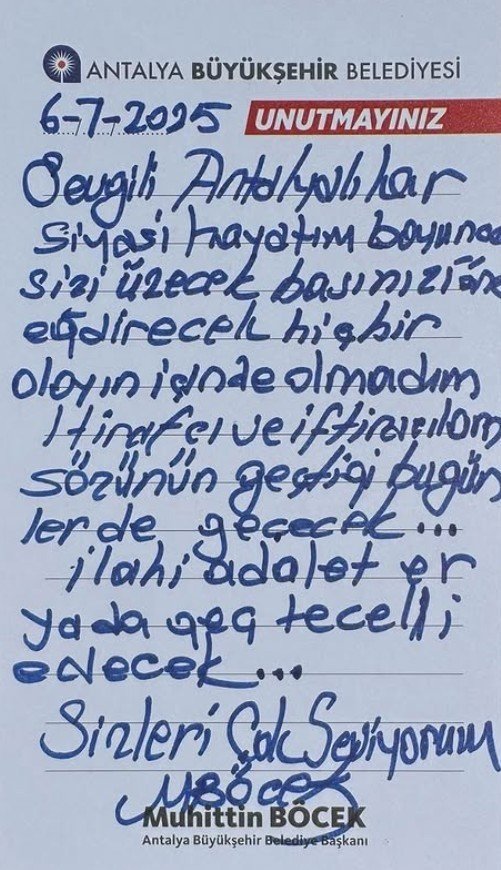 ANTALYA BÜYÜKŞEHİR BELEDİYESİ
6-7-2025 UNUTMAYINIZ
Sevgili Antalyalılar
siyasi hayatım boyunca
sizi üzecek başınızı öne
eğdirecek hiçbir
olayın içinde olmadım
Itirafçı ve iftiracıların
sözünün geçtiği bugün
lerde geçecek...
ilahi adalet er
yada geç tecelli
edecek...
Sizleri Çok Seviyorum
MBöcek
Muhittin BÖCEK
Antalya Büyükşehir Belediye Başkanı